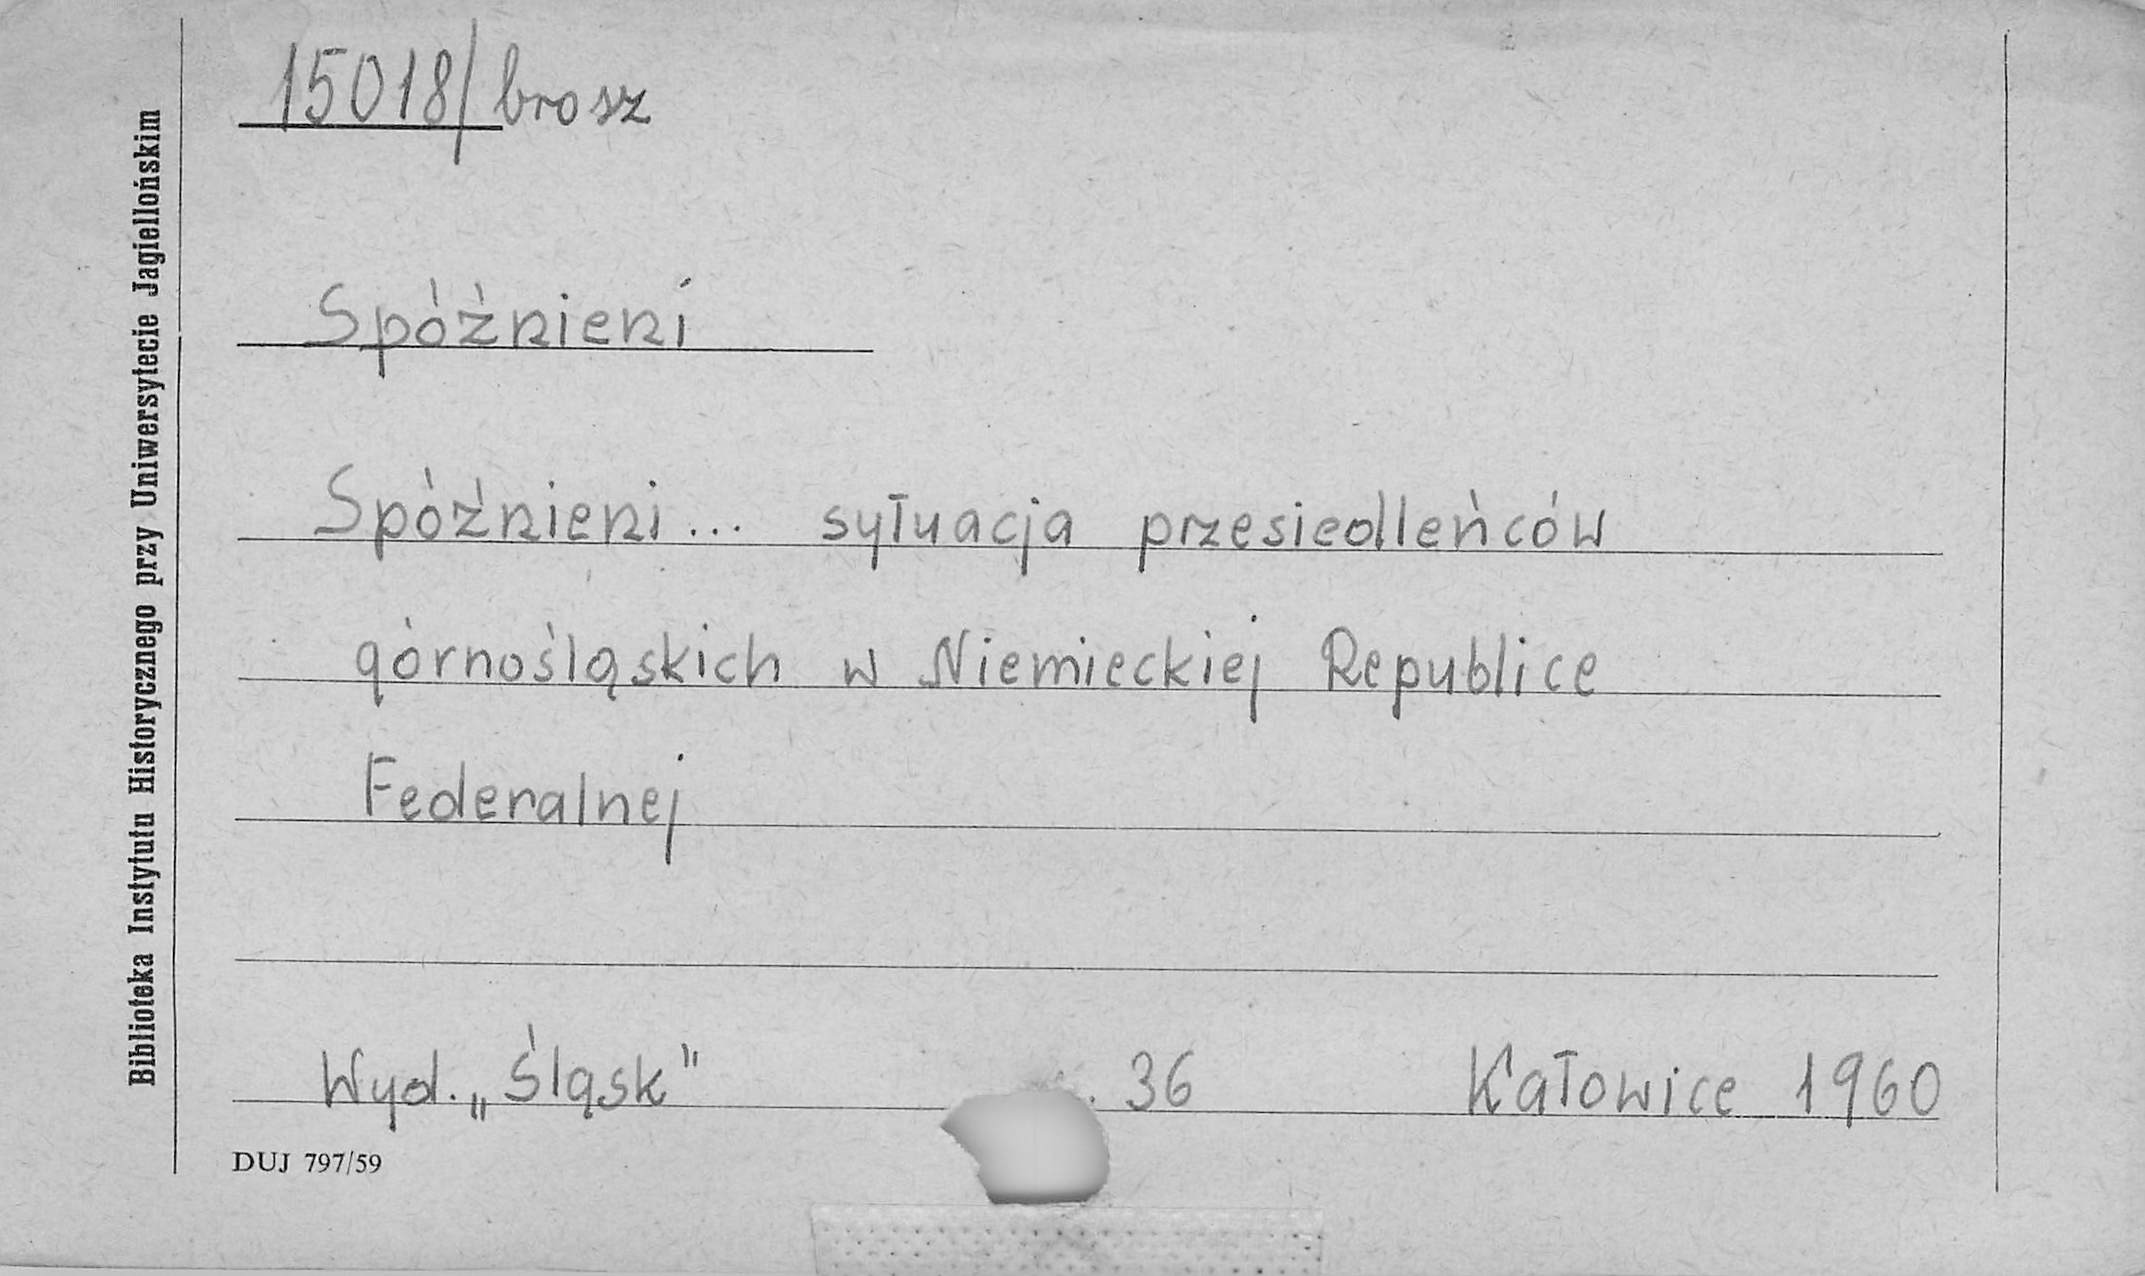 15018/brosz
Spóźnieni
Spóźnieni... sytuacja przesiedleńców
górnośląskich w Niemieckiej Republice
Federalnej
Wyd. „Śląsk" 36 Katowice 1960
DUJ 797/59
Biblioteka Instytutu Historycznego przy Uniwersytecie Jagiellońskim